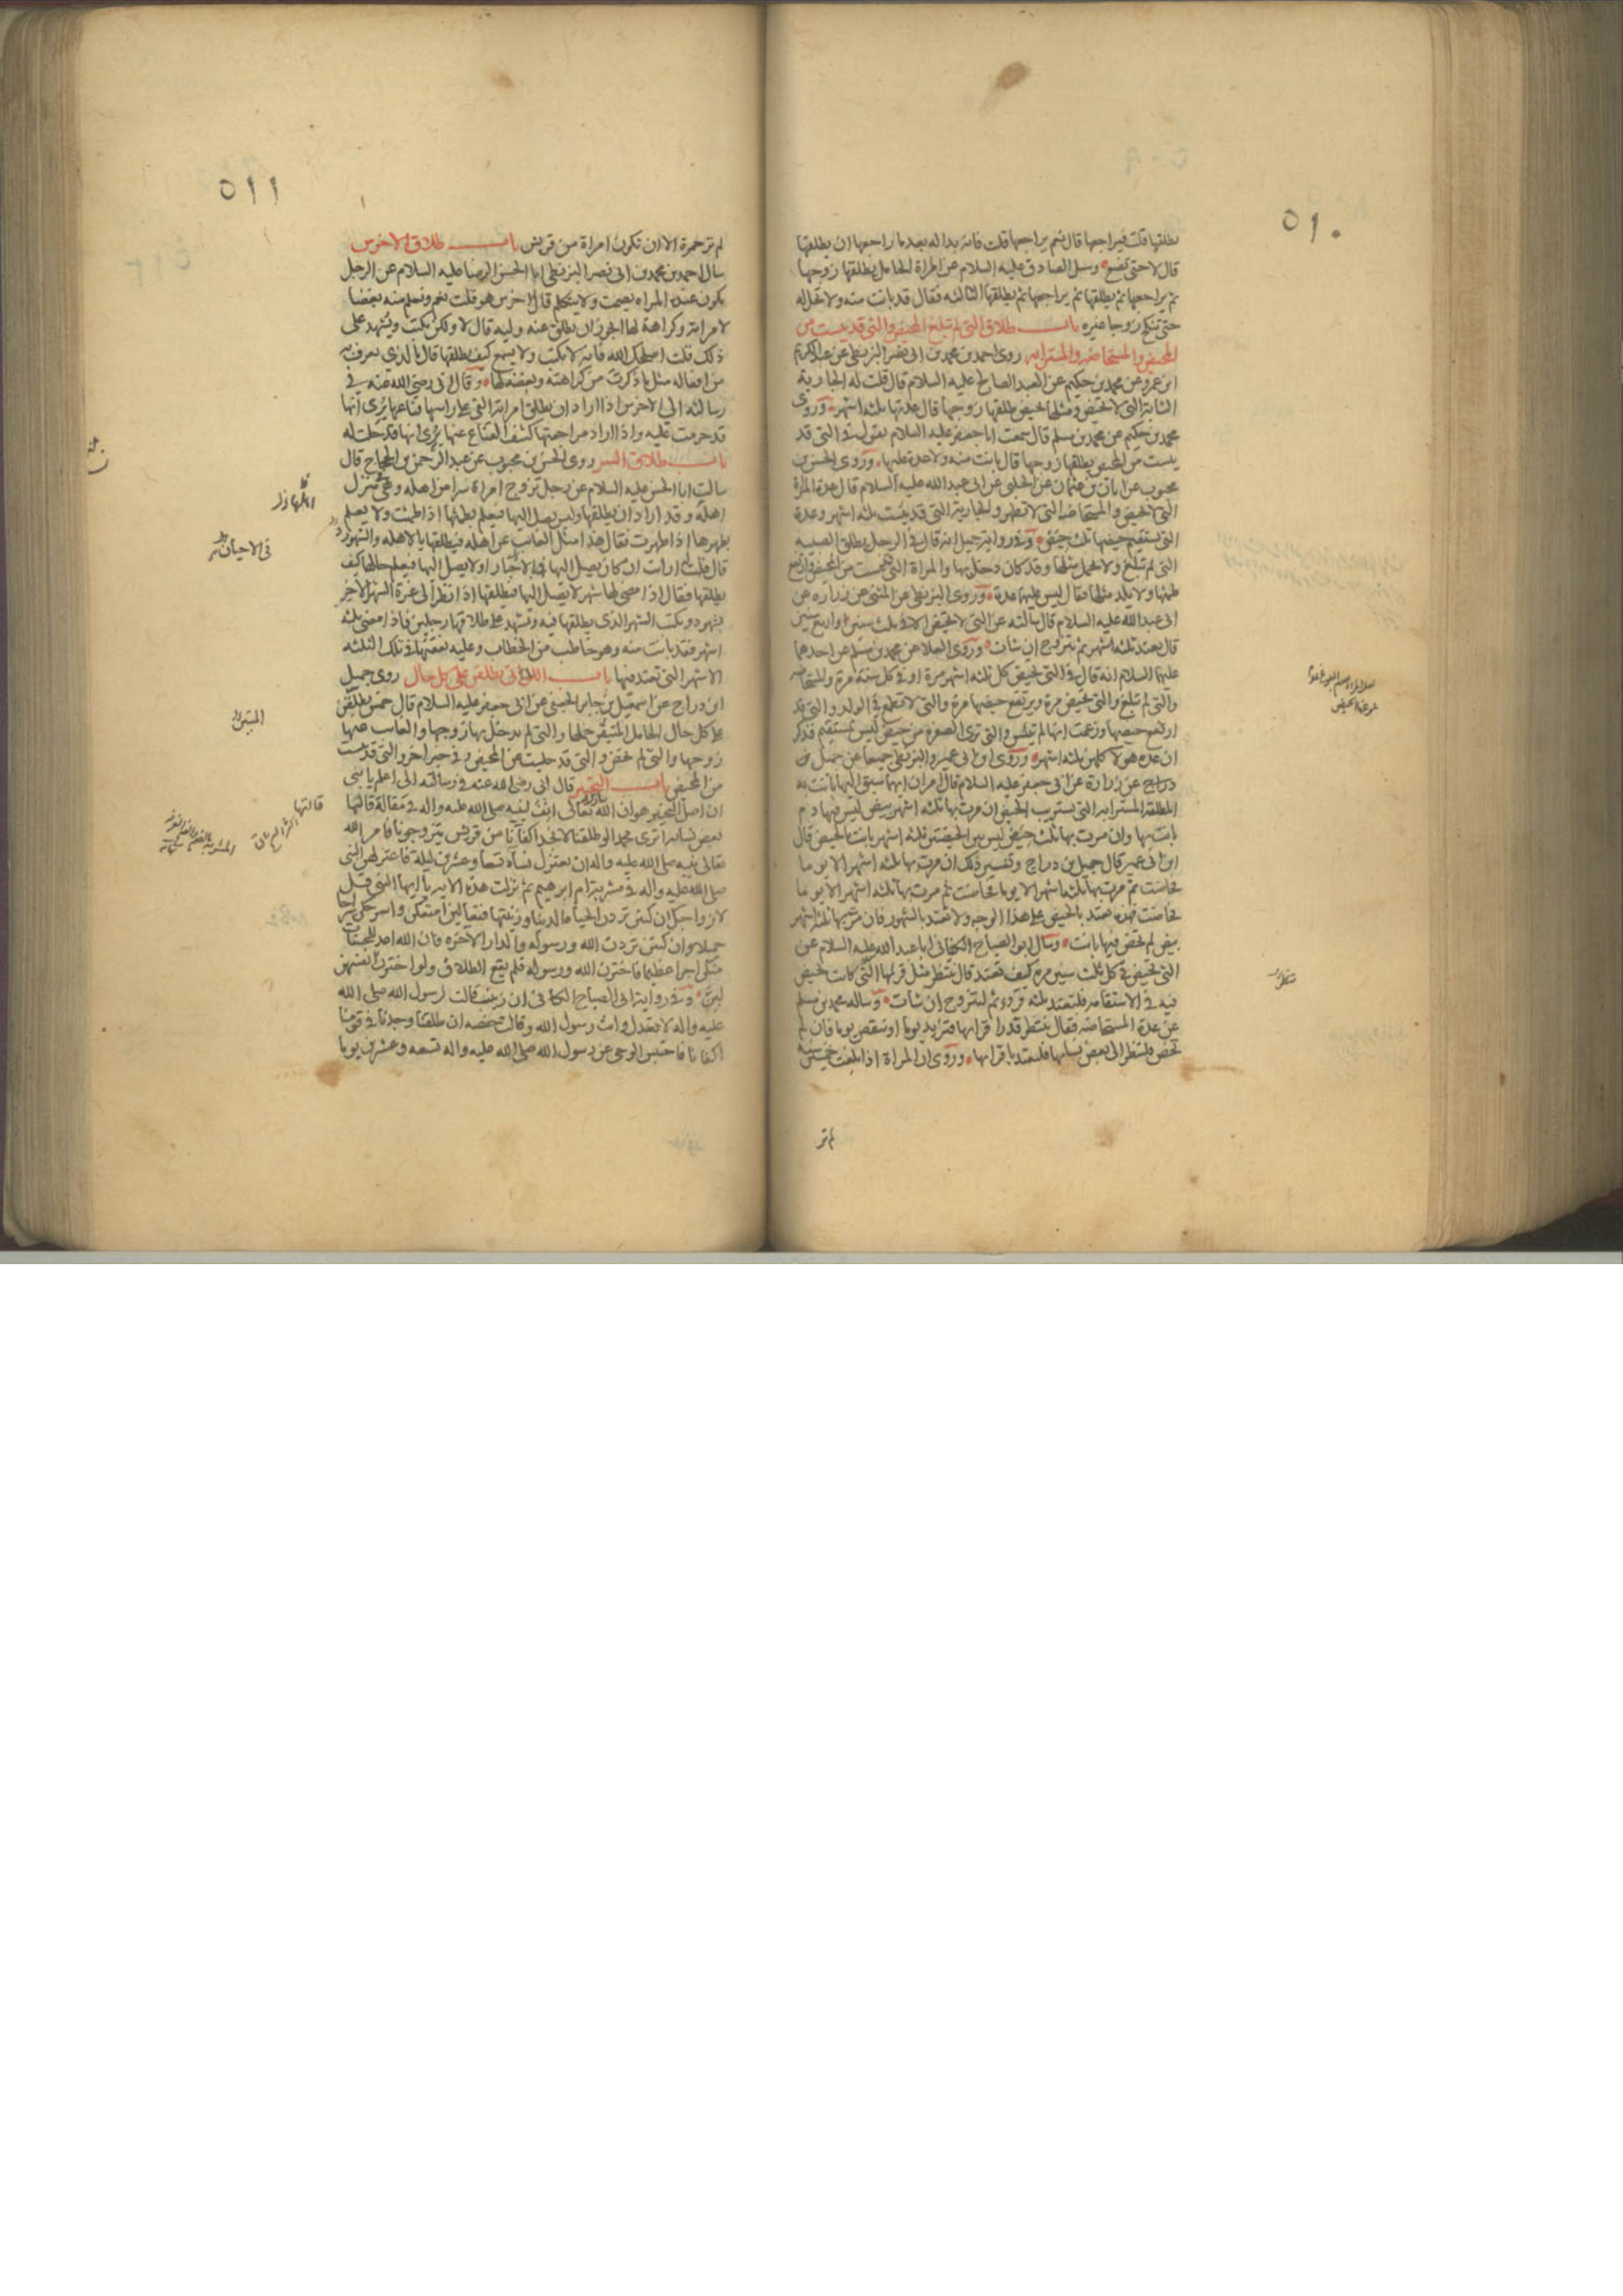 ٥١٠
يطلقها قلت فيراجعها قال نعم يراجعها قلت فانه بدا له بعد ما راجعها ان يطلقها
قال لا حتى تضع وسئل الصادق عليه السلام عن المراة الحامل يطلقها زوجها
ثم يراجعها ثم يطلقها ثم يراجعها ثم يطلقها الثالثه فقال قد بانت منه ولا تحل له
حتى تنكح زوجا غيره باب طلاق التى لم تبلغ المحيض والتى قد يئست من
المحيض والمستحاضه والمسترابه روى احمد بن محمد بن ابى نصر البزنطى عن عبد الكريم
ابن عمرو عن محمد بن حكيم عن العبد الصالح عليه السلام قال قلت له الجارية
الشابة التى لا تحيض ومثلها تحيض طلقها زوجها قال عدتها ثلثه اشهر وروى
محمد بن حكيم عن محمد بن مسلم قال سمعت ابا جعفر عليه السلام يقول فى التى قد
يئست من المحيض يطلقها زوجها قال بانت منه ولا عدة عليها وروى الحسن بن
محبوب عن ابان بن عثمان عن الحلبى عن ابى عبد الله عليه السلام قال عدة المراة
التى لا تحيض والمستحاضه التى لا تطهر والجارية التى قد يئست ثلثه اشهر وعدة
التى يستقيم حيضها ثلث حيض وفى رواية جميل انه قال فى الرجل يطلق الصبيه
التى لم تبلغ ولا تحمل مثلها وقد كان دخل بها والمراة التى قد يئست من المحيض وارتفع
طمثها ولا يلد مثلها فقال ليس عليهما عدة وروى البزنطى عن المثنى عن زراره عن
ابى عبد الله عليه السلام قال سالته عن التى لا تحيض الا فى ثلث سنين او اربع سنين
قال تعتد ثلثه اشهر ثم تتزوج ان شاءت وروى العلا عن محمد بن مسلم عن احدهما
عليهما السلام انه قال فى التى تحيض كل ثلثه اشهر مرة او فى كل ستة مرة والمستحاضه
والتى لم تبلغ والتى تحيض مرة ويرتفع حيضها مرة والتى لا تطمع فى الولد والتى قد
ارتفع حيضها وزعمت انها لم تيئس والتى ترى الصفره من حيض ليس بمستقيم فذكر
ان عدة هولاء كلهن ثلثه اشهر وروى ابن ابى عمير والبزنطى جميعا عن جميل بن
دراج عن زرارة عن ابى جعفر عليه السلام قال امران ايهما سبق اليها بانت به
المطلقة المسترابة التى تستريب الحيض ان مرت بها ثلثه اشهر بيض ليس فيها دم
بانت بها وان مرت بها ثلث حيض ليس بين الحيضتين ثلثه اشهر بانت بالحيض قال
ابن ابى عمير قال جميل بن دراج وتفسير ذلك ان مرت بها ثلثه اشهر الا يوما
فحاضت ثم مرت بها ثلثه اشهر الا يوما فحاضت ثم مرت بها ثلثه اشهر الا يوما
فحاضت فهذه تعتد بالحيض على هذا الوجه ولا تعتد بالشهور فان مرت بها ثلثه اشهر
بيض لم تحض فيها بانت وسال ابو الصباح الكنانى ابا عبد الله عليه السلام عن
التى تحيض فى كل ثلث سنين مرة كيف تعتد قال تنتظر مثل قرئها التى كانت تحيض
فيه فى الاستقامه فلتعتد ثلثه قروء ثم لتتزوج ان شاءت وساله محمد بن مسلم
عن عدة المستحاضه فقال تنتظر قدر اقرائها فتزايد يوما او تنقص يوما فان لم
تحض فلتنظر الى بعض نسائها فلتعتد باقرائها وروى ان المراة اذا بلغت خمسين سنه
لم تر
٥١١
لم تر حمرة الا ان تكون امراة من قريش باب طلاق الاخرس
سال احمد بن محمد بن ابى نصر البزنطى ابا الحسن الرضا عليه السلام عن الرجل
يكون عنده المراه يصمت ولا يتكلم قال اخرس هو قلت نعم ونعلم منه بغضا
لامراته وكراهة لها ايجوز ان يطلق عنه وليه قال لا ولكن يكتب ويشهد على
ذلك قلت اصلحك الله فانه لا يكتب ولا يسمع كيف يطلقها قال بالذى يعرف به
من افعاله مثل ما ذكرت من كراهته وبغضه لها وقال ابى رضى الله عنه فى
رسالته الى الاخرس اذا اراد ان يطلق امراته القى على راسها قناعها يرى انها
قد حرمت عليه واذا اراد مراجعتها كشف القناع عنها يرى انها قد حلت له
باب طلاق السر روى الحسن بن محبوب عن عبد الرحمن بن الحجاج قال
سالت ابا الحسن عليه السلام عن رجل تزوج امراة سرا من اهله وهى فى منزل
اهله وقد اراد ان يطلقها وليس يصل اليها فيعلم بطمثها اذا طمثت ولا يعلم
بطهرها اذا طهرت فقال هذا مثل الغائب عن اهله فيطلقها بالاهله والشهور
قال قلت ارايت ان كان يصل اليها الاحيان ولا يصل اليها فيعلم حالها كيف
يطلقها فقال اذا مضى لها شهر لا يصل اليها فيطلقها اذا نظر الى غرة الشهر الاخر
بشهود ويكتب الشهر الذى يطلقها فيه وتشهد على طلاقها رجلين فاذا مضى ثلثه
اشهر فقد بانت منه وهو خاطب من الخطاب وعليه نفقتها فى تلك الثلثه
الاشهر التى تعتد منها باب اللاتى يطلقن على كل حال روى جميل
ابن دراج عن اسمعيل بن جابر الجعفى عن ابى جعفر عليه السلام قال خمس يطلقن
على كل حال الحامل المتيقن حملها والتى لم يدخل بها زوجها والغائب عنها
زوجها والتى لم تحض والتى قد جلست عن المحيض وفى خبر اخر والتى قد يئست
من المحيض باب التخيير قال ابى رضى الله عنه فى رسالته الى اعلم يا بنى
ان اصل التخيير هو ان الله تبارك وتعالى انف لنبيه صلى الله عليه واله فى مقالة قالتها
بعض نسائه اترى محمدا لو طلقنا لا نجد اكفانا من قريش يتزوجونا فامر الله
تعالى نبيه صلى الله عليه واله ان يعتزل نساءه تسعا وعشرين ليلة فاعتزلهن النبى
صلى الله عليه واله فى مشربة ام ابرهيم ثم نزلت هذه الاية يا ايها النبى قل
لازواجك ان كنتن تردن الحياة الدنيا وزينتها فتعالين امتعكن واسرحكن سراحا
جميلا وان كنتن تردن الله ورسوله والدار الاخره فان الله اعد للمحسنات
منكن اجرا عظيما فاخترن الله ورسوله فلم يقع الطلاق ولو اخترن انفسهن
لبن وفى رواية ابى الصباح الكنانى ان زينب قالت لرسول الله صلى الله
عليه واله لا تعدل وانت رسول الله وقالت حفصه ان طلقنا وجدنا فى قومنا
اكفانا فاحتبس الوحى عن رسول الله صلى الله عليه واله تسعه وعشرين يوما
فى الاحيان
المتبين
قالتها